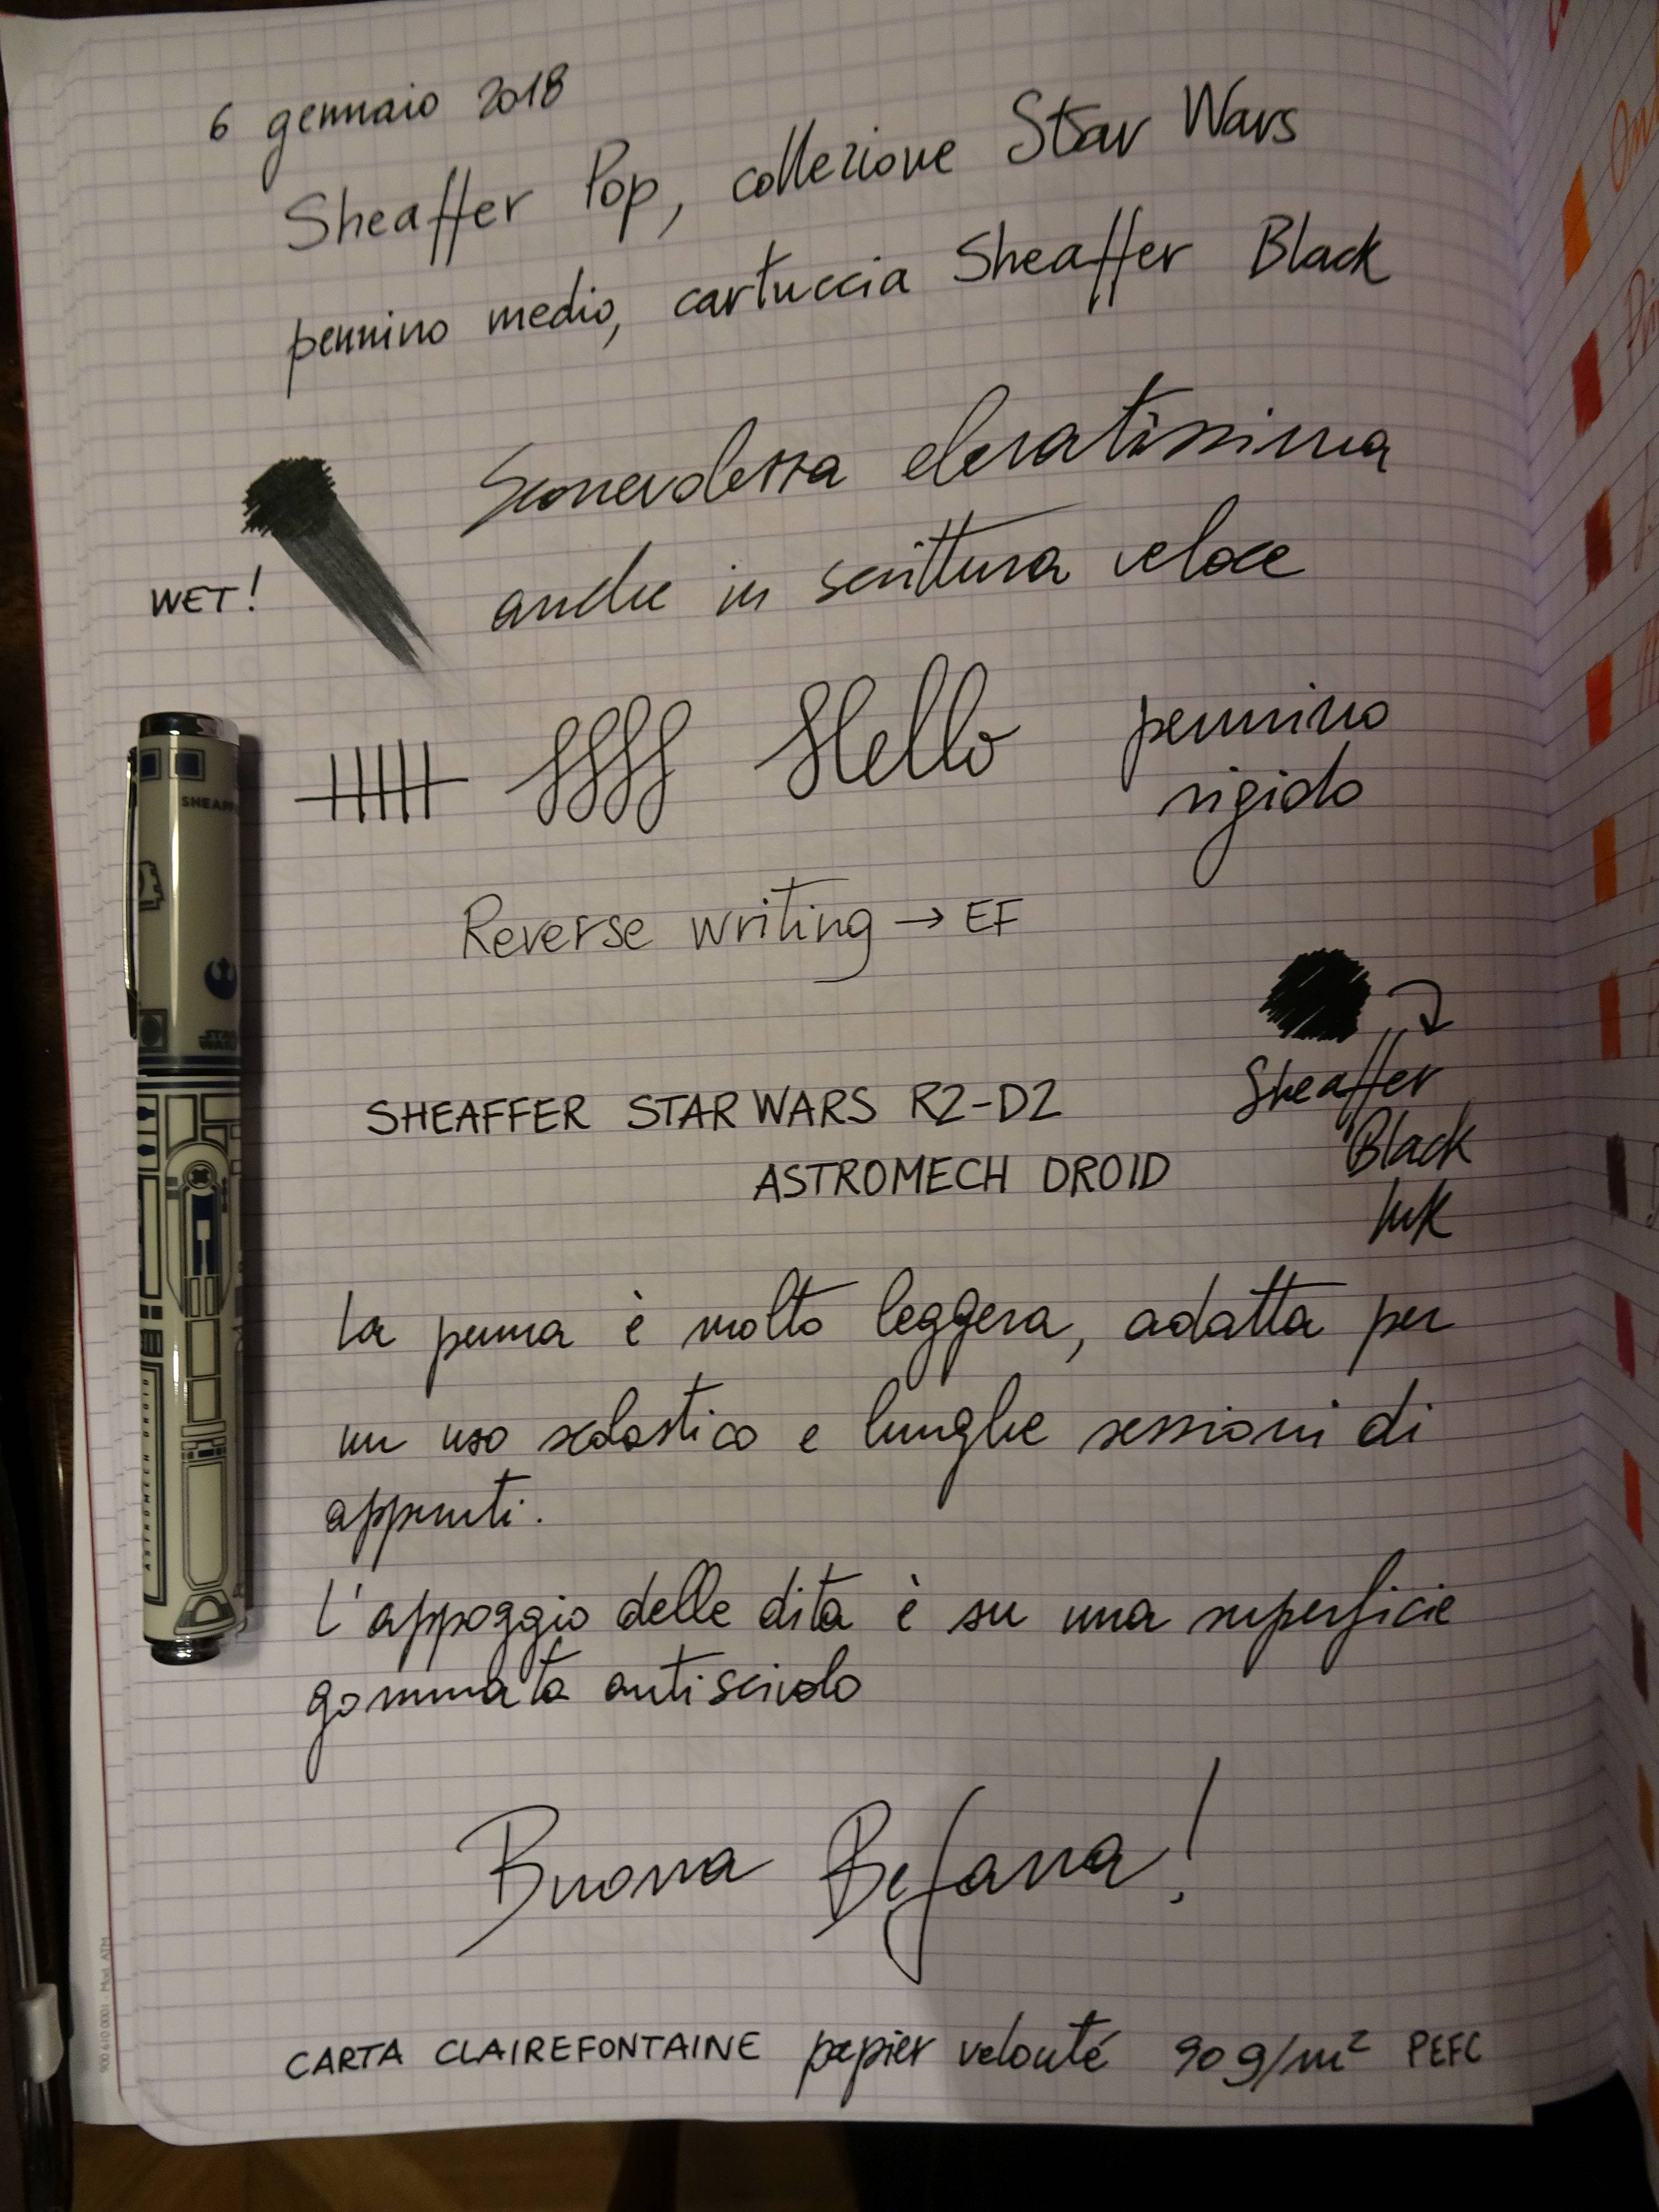 6 gennaio 2018
Sheaffer Pop, collezione Star Wars
pennino medio, cartuccia Sheaffer Black
Scorrevolezza elevatissima
anche in scrittura veloce
WET!
Hello
pennino
rigido
Reverse writing → EF
Sheaffer
Black
Ink
SHEAFFER STAR WARS R2-D2
ASTROMECH DROID
La penna è molto leggera, adatta per
un uso scolastico e lunghe sessioni di
appunti.
L'appoggio delle dita è su una superficie
gommata antiscivolo
Buona Befana!
CARTA CLAIREFONTAINE papier velouté 90 g/m² PEFC
SHEAFF
STAR
WARS
ASTROMECH DROID
900 610 0001 Mod. ATM